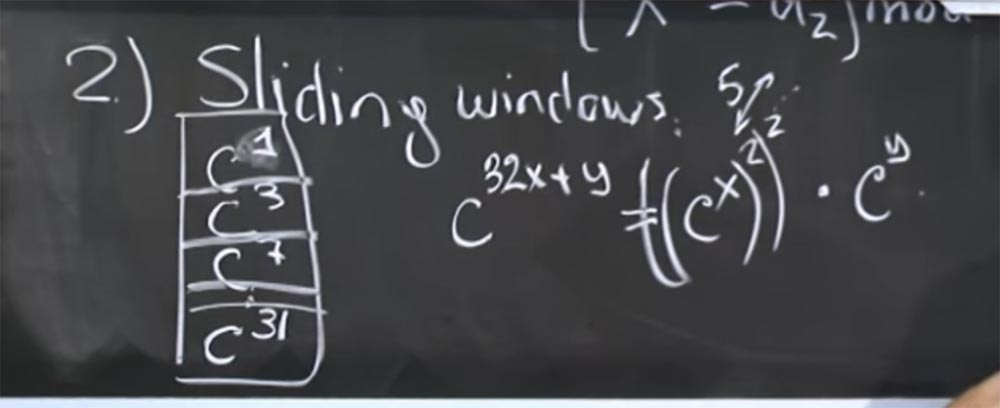 2) Sliding windows.
5
C^1
C^3
C^7
⋮
C^31
C^{32x+y} = (((C^x)^2)^2 · C^y.